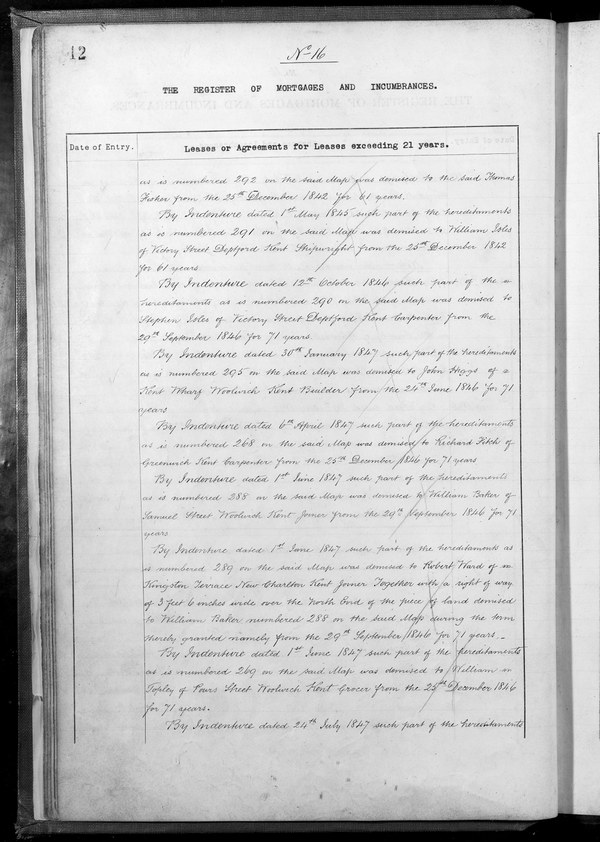 12
No 16
THE REGISTER OF MORTGAGES AND INCUMBRANCES.
Date of Entry.
Leases or Agreements for Leases exceeding 21 years.
as is numbered 292 on the said Map was demised to the said Thomas
Fisher from the 25th December 1842 for 61 years.
By Indenture dated 1st May 1845 such part of the hereditaments
as is numbered 291 on the said Map was demised to William Isles
of Victory Street Deptford Kent Shipwright from the 25th December 1842
for 61 years.
By Indenture dated 12th October 1846 such part of the
hereditaments as is numbered 290 on the said Map was demised to
Stephen Isles of Victory Street Deptford Kent Carpenter from the
29th September 1846 for 71 years.
By Indenture dated 30th January 1847 such part of the hereditaments
as is numbered 295 on the said Map was demised to John Heggs of
Kent Wharf Woolwich Kent Builder from the 24th June 1846 for 71
years
By Indenture dated 6th April 1847 such part of the hereditaments
as is numbered 268 on the said Map was demised to Richard Fitch of
Greenwich Kent Carpenter from the 25th December 1846 for 71 years
By Indenture dated 1st June 1847 such part of the hereditaments
as is numbered 288 on the said Map was demised to William Baker of
Samuel Street Woolwich Kent Joiner from the 29th September 1846 for 71
years
By Indenture dated 1st June 1847 such part of the hereditaments as
is numbered 289 on the said Map was demised to Robert Ward of
Kingston Terrace New Charlton Kent Joiner Together with a right of way
of 3 feet 6 inches wide over the North End of the piece of land demised
to William Baker numbered 288 on the said Map during the term
thereby granted namely from the 29th September 1846 for 71 years. -
By Indenture dated 1st June 1847 such part of the hereditaments
as is numbered 269 on the said Map was demised to William
Topley of Street Woolwich Kent Grocer from the 25th December 1846
for 71 years.
By Indenture dated 24th July 1847 such part of the hereditaments